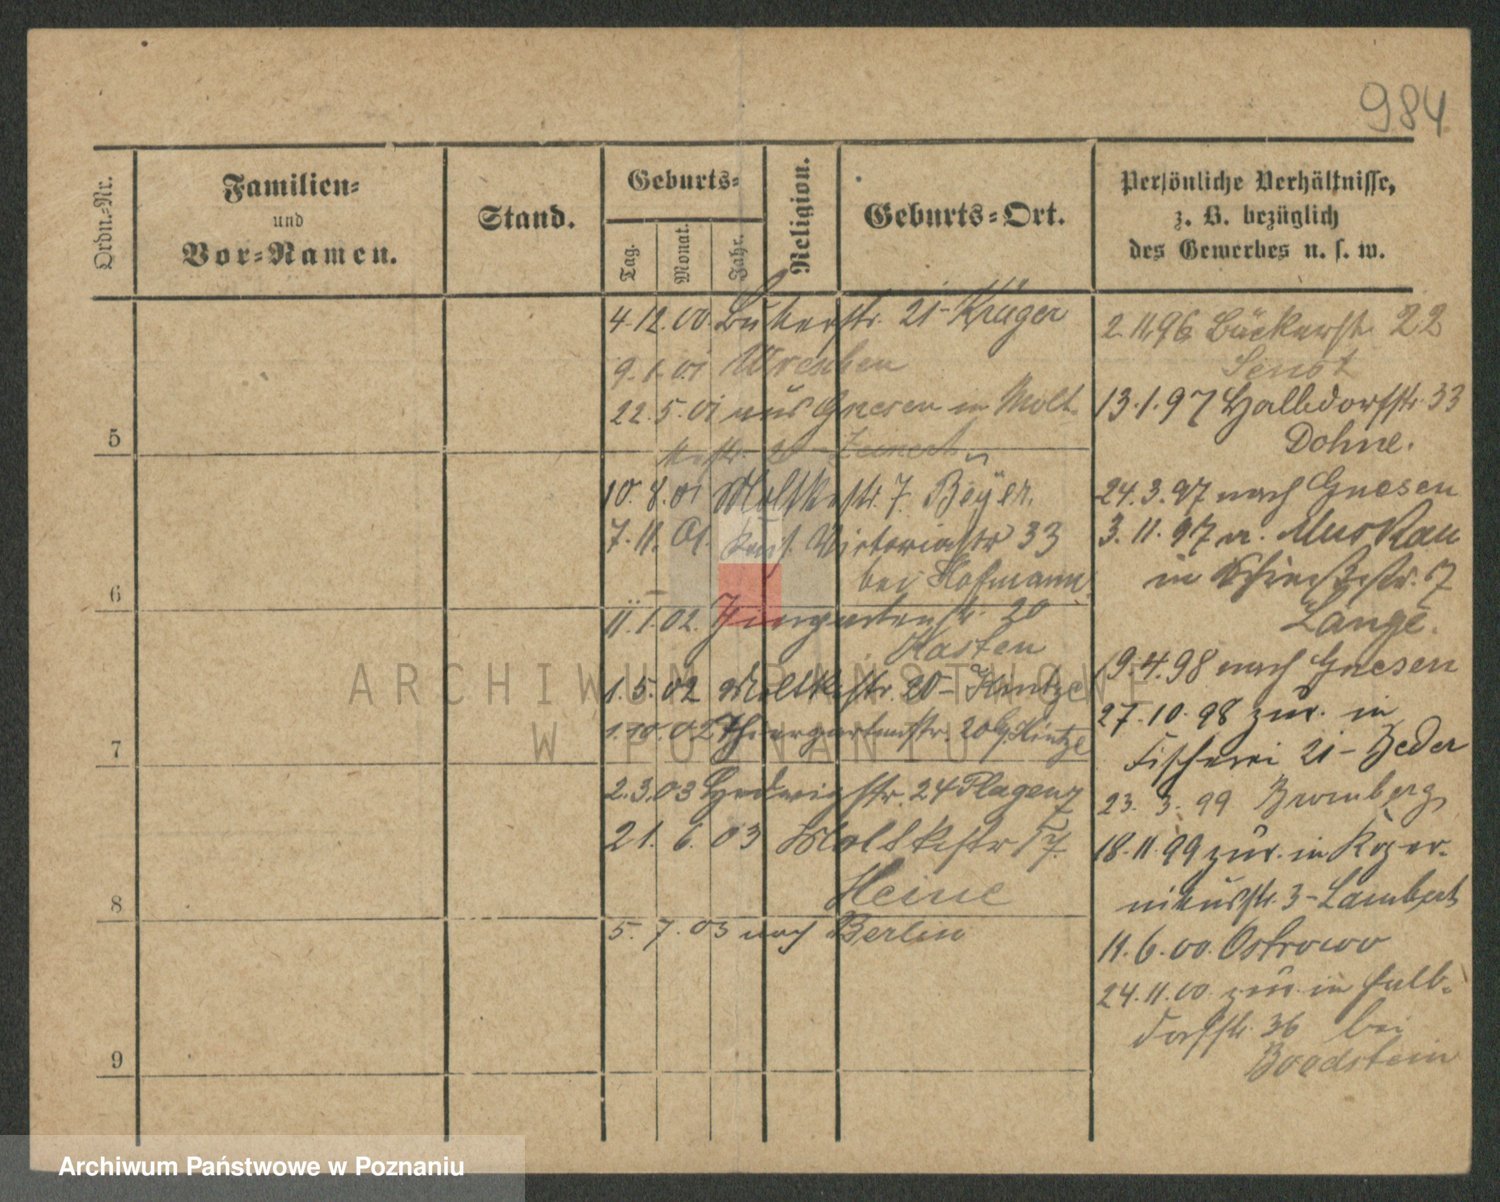 984
Ordn.-Nr.
Familien-
und
Vor-Namen.
Stand.
Geburts-
Tag.
Monat.
Jahr.
Religion.
Geburts-Ort.
Persönliche Verhältnisse,
z. B. bezüglich
des Gewerbes u. s. w.
4.12.00 21 - Krüger
9.1.01 Wreschen
22.5.01 aus Gnesen in Molt
5
10.8.01 Moltkestr. 7. Beyer.
7.11.01. Victoriastr 33
bei Hofmann
6
11.1.02. Thiergartenstr. 20
Kasten
1.5.02 Moltkestr. 20 - Hintze
1.10.02 Thiergartenstr. 20 Hintze
7
2.3.03 Hedwigstr. 24 Plagenz
21.6.03 Moltkestr 17.
Heine
8
5.7.03 nach Berlin
9
2.11.96 Bäckerstr. 22
13.1.97 Halbdorfstr. 33
Dohne.
24.3.97 nach Gnesen
3.11.97 v. Muskau
in 17
Lange.
19.4.98 nach Gnesen
27.10.98 zur. in
Fischerei 21 - Zeder
23.3.99 Bromberg
18.11.99 zur. in Koper-
nikusstr. 3 - Lambert
11.6.00. Ostrowo
24.11.00 zur. in Halb-
dorfstr. 36 bei
Boodstein
ARCHIWUM PAŃSTWOWE
W POZNANIU
Archiwum Państwowe w Poznaniu